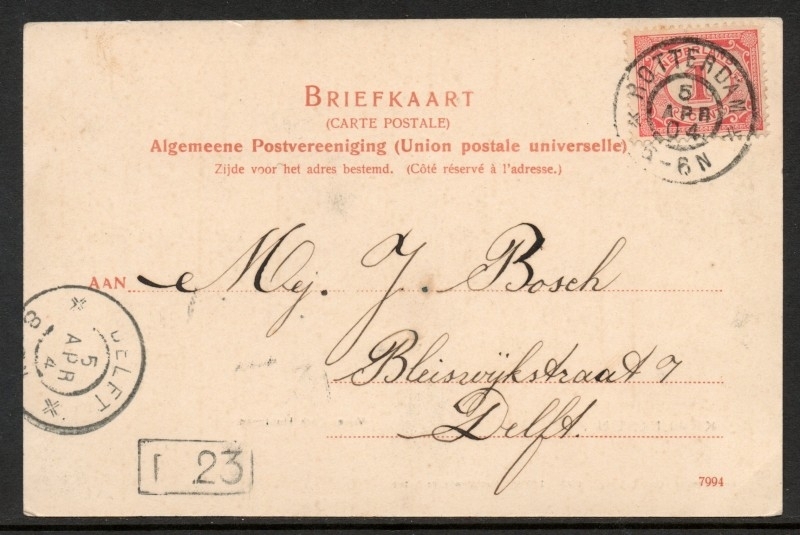 BRIEFKAART
(CARTE POSTALE)
Algemeene Postvereeniging (Union postale universelle)
Zijde voor het adres bestemd. (Côté réservé à l'adresse.)
ROTTERDAM
5
APR
04
5-6N
1
AAN Mej. J. Bosch
Bleiswijkstraat 7
Delft.
DELFT
5
APR
4
23
7994